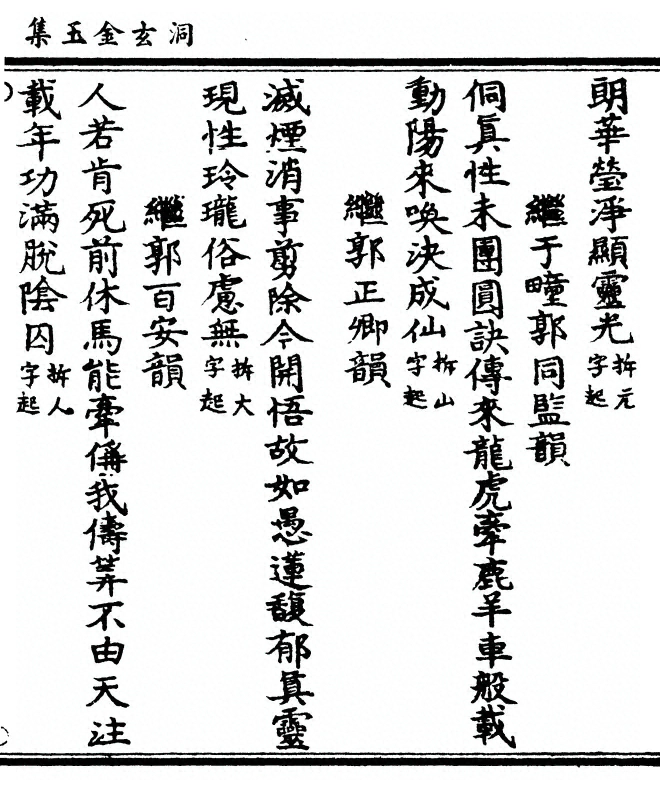 洞玄金玉集
朗華瑩淨顯靈光拆元字起
繼于疃郭同監韻
侗真性未團圓訣傳來龍虎牽鹿羊車般載
動陽來喚決成仙拆山字起
繼郭正卿韻
滅煙消事剪除今開悟故如愚蓮馥郁真靈
現性玲瓏俗慮無拆大字起
繼郭百安韻
人若肯死前休馬能牽儔我儔筭不由天注
載年功滿脫陰囚拆人字起